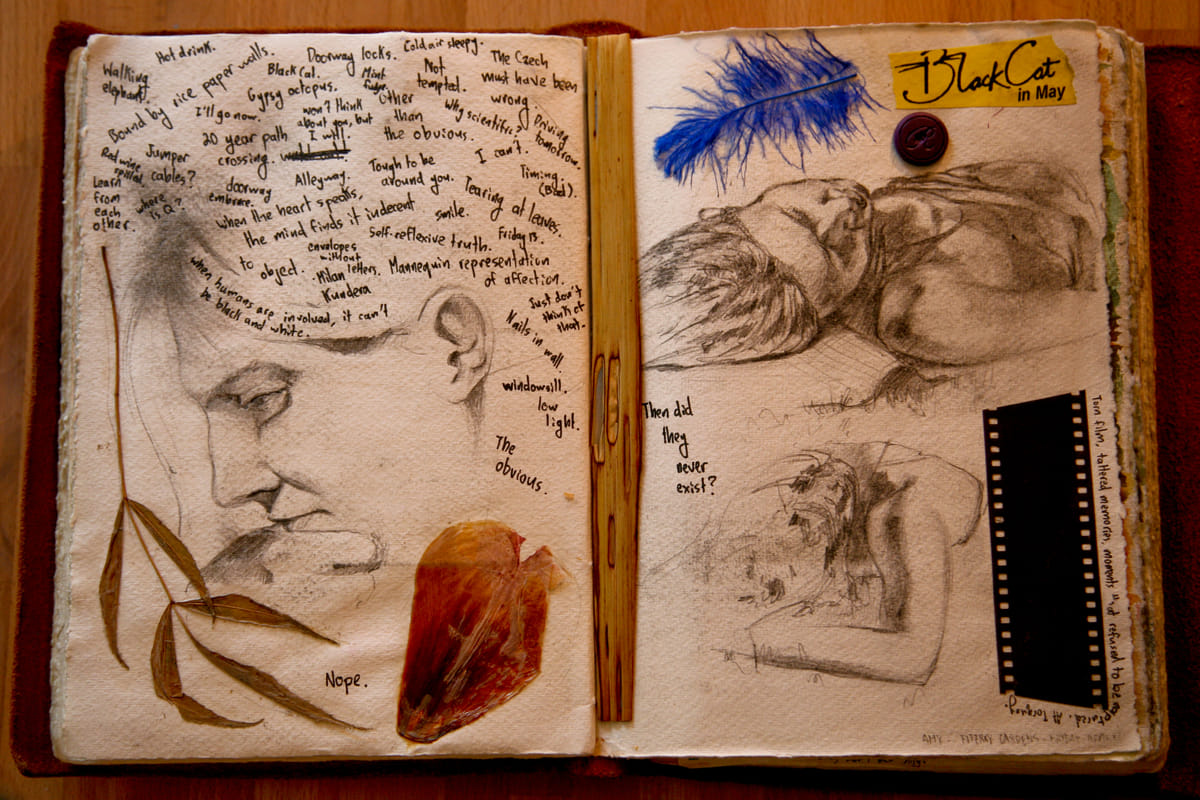 Hot drink.
Walking
elephant.
Bound by rice paper walls.
Doorway locks.
Cold air sleepy.
Black Cat.
Gypsy octopus.
Mint
fudge.
Not
tempted.
The Czech
must have been
wrong.
I'll go now.
won't think
about you, but
I will
Other
than
the obvious.
Why scientific?
I can't.
Driving
tomorrow.
20 year path
crossing.
Red wine
spilled.
Jumper
cables?
Learn
from
each
other.
where
is Q?
doorway
embrace.
Alleyway.
Tough to be
around you.
Timing.
(Bad).
when the heart speaks,
the mind finds it indecent
to object.
Milan
Kundera
smile.
Tearing at leaves.
Friday 13.
Self-reflexive truth.
envelopes
without
letters.
Mannequin representation
of affection.
when humans are involved, it can't
be black and white.
Just don't
think of
that.
Nails in wall.
windowsill,
low
light.
The
obvious.
Nope.
Black Cat
in May
R
Then did
they
never
exist?
Torn film, tattered memories, moments that refused to be captured. At Torquay.